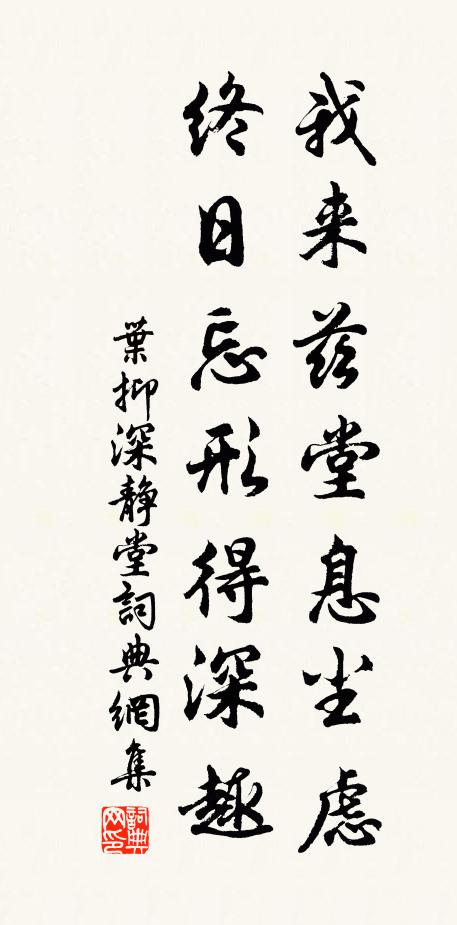 我来兹堂息尘虑
终日忘形得深趣
葉抑深靜堂詞典網集
詞典网印